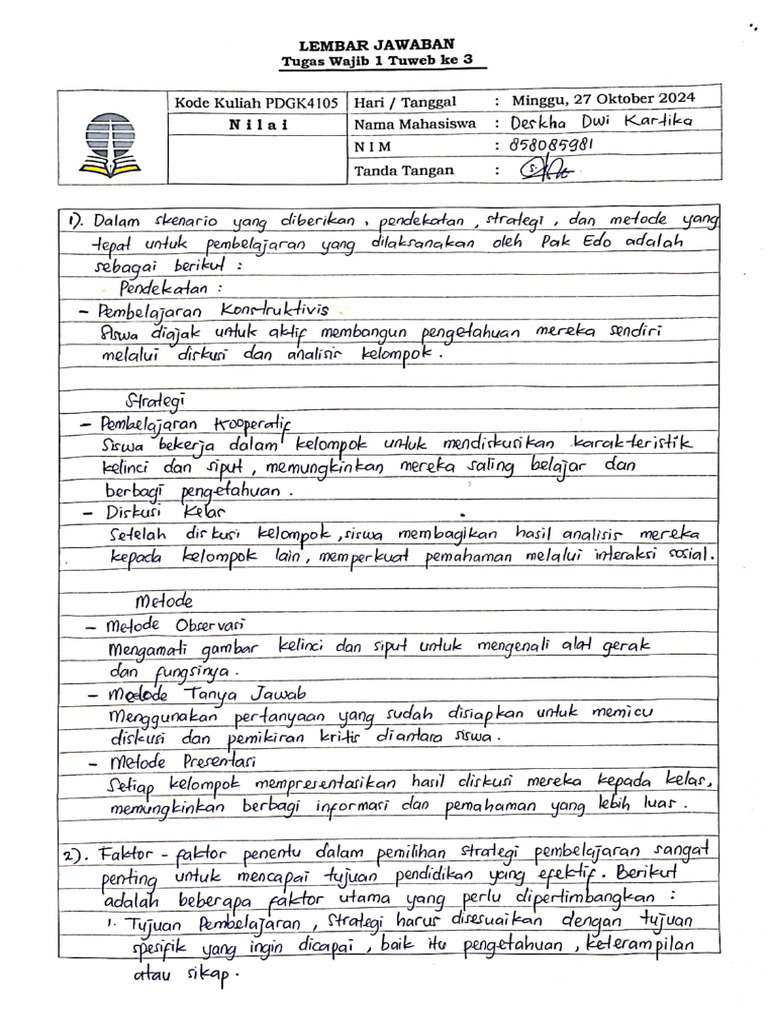 LEMBAR JAWABAN
Tugas Wajib 1 Tuweb ke 3
Kode Kuliah PDGK4105
Hari / Tanggal : Minggu, 27 Oktober 2024
Nilai
Nama Mahasiswa : Deskha Dwi Kartika
NIM : 858085981
Tanda Tangan :
1). Dalam skenario yang diberikan, pendekatan, strategi, dan metode yang
tepat untuk pembelajaran yang dilaksanakan oleh Pak Edo adalah
sebagai berikut :
Pendekatan :
- Pembelajaran Konstruktivis
Siswa diajak untuk aktif membangun pengetahuan mereka sendiri
melalui diskusi dan analisis kelompok.
Strategi
- Pembelajaran Kooperatif
Siswa bekerja dalam kelompok untuk mendiskusikan karakteristik
kelinci dan siput, memungkinkan mereka saling belajar dan
berbagi pengetahuan.
- Diskusi Kelas
Setelah diskusi kelompok, siswa membagikan hasil analisis mereka
kepada kelompok lain, memperkuat pemahaman melalui interaksi sosial.
Metode
- Metode Observasi
Mengamati gambar kelinci dan siput untuk mengenali alat gerak
dan fungsinya.
- Metode Tanya Jawab
Menggunakan pertanyaan yang sudah disiapkan untuk memicu
diskusi dan pemikiran kritis diantara siswa.
- Metode Presentasi
Setiap kelompok mempresentasikan hasil diskusi mereka kepada kelas,
memungkinkan berbagi informasi dan pemahaman yang lebih luas.
2). Faktor - faktor penentu dalam pemilihan strategi pembelajaran sangat
penting untuk mencapai tujuan pendidikan yang efektif. Berikut
adalah beberapa faktor utama yang perlu dipertimbangkan :
1. Tujuan Pembelajaran, Strategi harus disesuaikan dengan tujuan
spesifik yang ingin dicapai, baik itu pengetahuan, keterampilan
atau sikap.